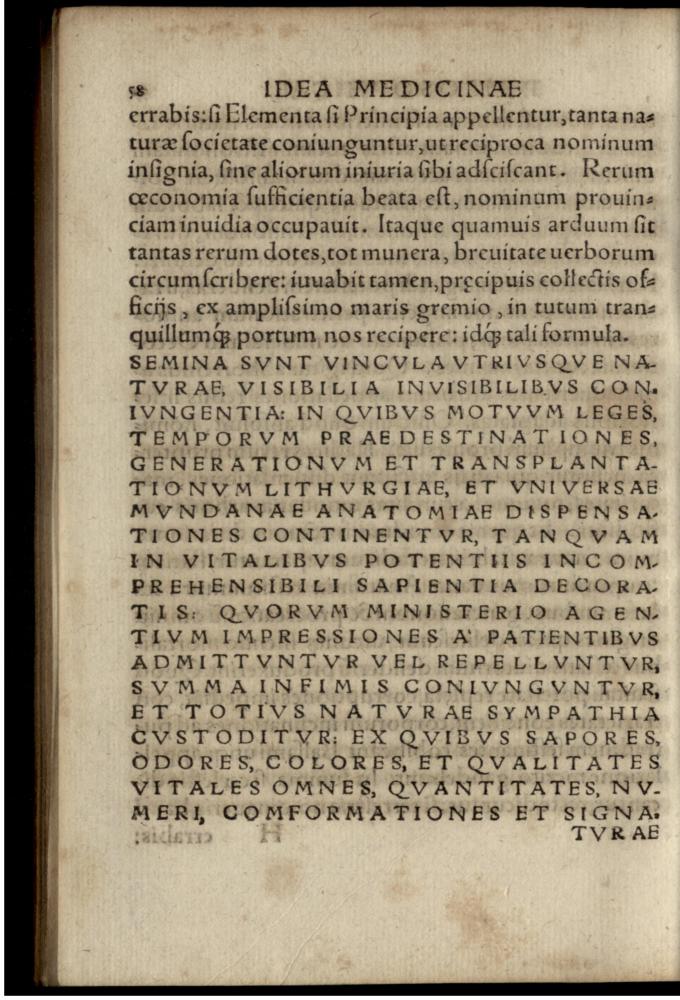 58 IDEA MEDICINAE
errabis: ſi Elementa ſi Principia appellentur, tanta na⸗
turæ ſocietate coniunguntur, ut reciproca nominum
inſignia, ſine aliorum iniuria ſibi adſciſcant. Rerum
œconomia ſufficientia beata eſt, nominum prouin⸗
ciam inuidia occupauit. Itaque quamuis arduum ſit
tantas rerum dotes, tot munera, breuitate uerborum
circumſcribere: iuuabit tamen, pręcipuis collectis of⸗
ficijs, ex ampliſsimo maris gremio, in tutum tran⸗
quillumq́ꝫ portum nos recipere: idq́ꝫ tali formula.
SEMINA SVNT VINCVLA VTRIVSQVE NA-
TVRAE, VISIBILIA INVISIBILIBVS CON.
IVNGENTIA: IN QVIBVS MOTVVM LEGES,
TEMPORVM PRAEDESTINATIONES,
GENERATIONVM ET TRANSPLANTA-
TIONVM LITHVRGIAE, ET VNIVERSAE
MVNDANAE ANATOMIAE DISPENSA-
TIONES CONTINENTVR, TANQVAM
IN VITALIBVS POTENTIIS INCOM-
PREHENSIBILI SAPIENTIA DECORA-
TIS: QVORVM MINISTERIO AGEN-
TIVM IMPRESSIONES A' PATIENTIBVS
ADMITTVNTVR VEL REPELLVNTVR,
SVMMA INFIMIS CONIVNGVNTVR,
ET TOTIVS NATVRAE SYMPATHIA
CVSTODITVR: EX QVIBVS SAPORES,
ODORES, COLORES, ET QVALITATES
VITALES OMNES, QVANTITATES, NV-
MERI, COMFORMATIONES ET SIGNA.
TVRAE